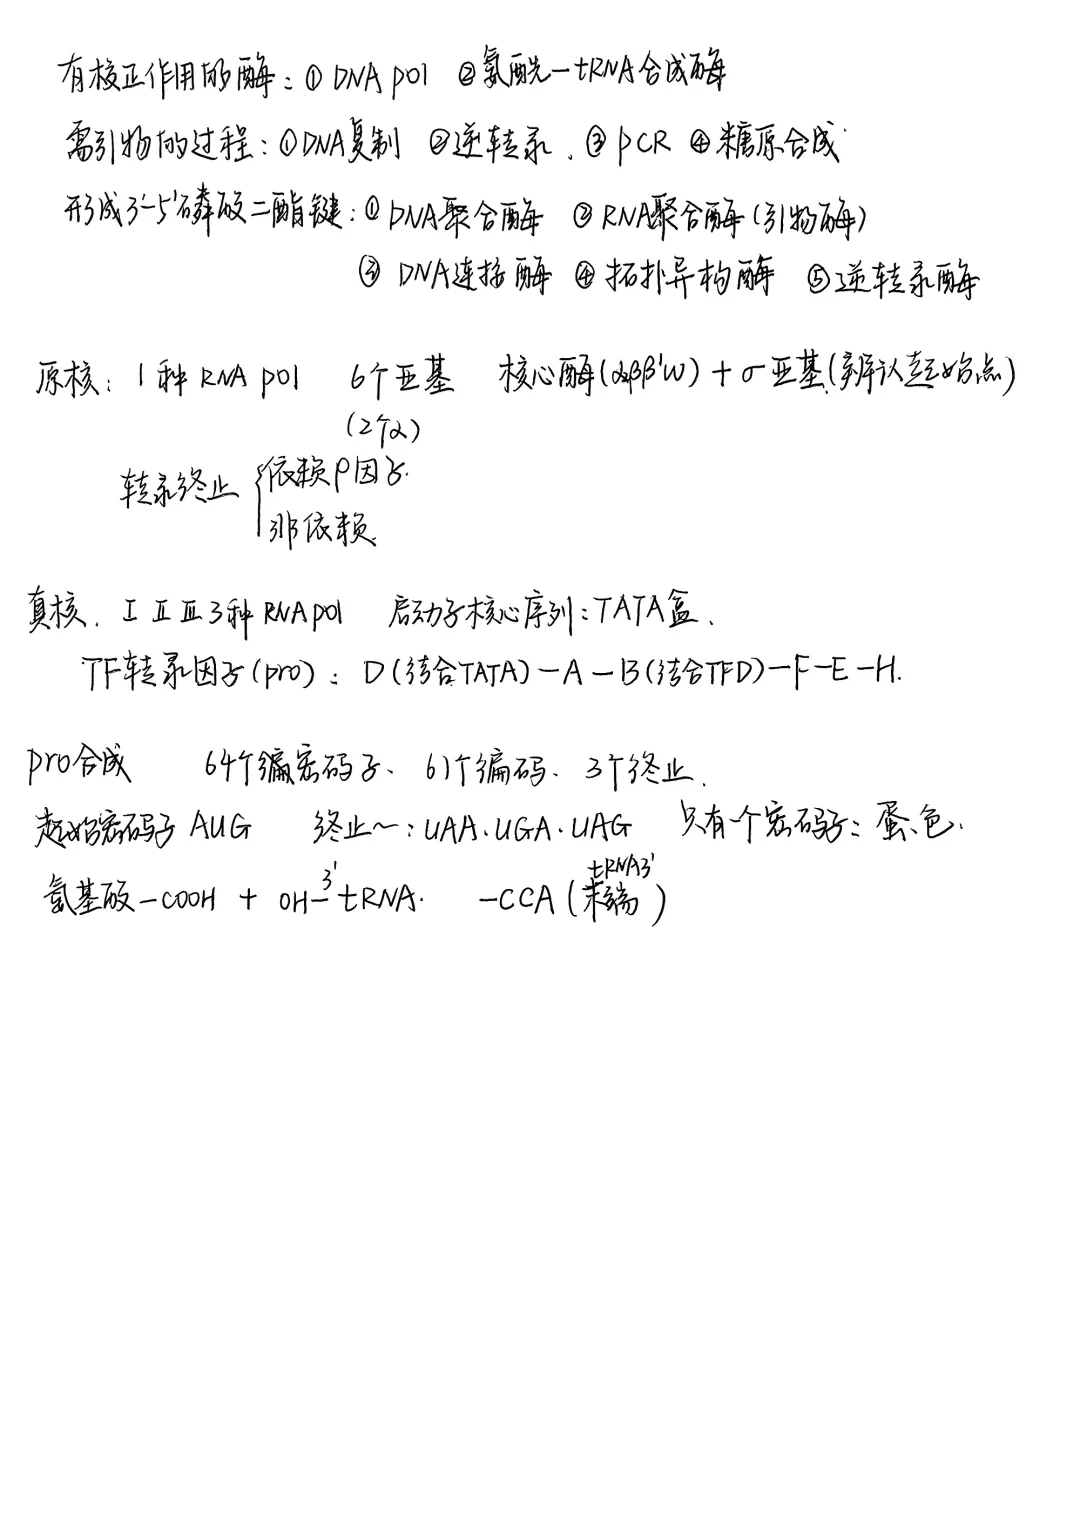 有核正作用的酶：① DNA pol ②氨酰-tRNA合成酶
需引物的过程：①DNA复制 ②逆转录、③PCR ④糖原合成
形成3'-5'磷酸二酯键：①DNA聚合酶 ②RNA聚合酶(引物酶)
③ DNA连接酶 ④拓扑异构酶 ⑤逆转录酶
原核：1种 RNA pol 6个亚基 核心酶(αββ'ω)+σ亚基(辨认起始点)
(2个α)
转录终止 { 依赖ρ因子.
非依赖
真核. Ⅰ Ⅱ Ⅲ 3种 RNA pol 启动子核心序列：TATA盒.
TF转录因子(pro)：D(结合TATA)-A-B(结合TFD)-F-E-H.
pro合成 64个编密码子、61个编码、3个终止.
起始密码子 AUG 终止~：UAA.UGA.UAG 只有一个密码子：蛋、色.
氨基酸-COOH + OH-3'tRNA. -CCA(tRNA3'末端)